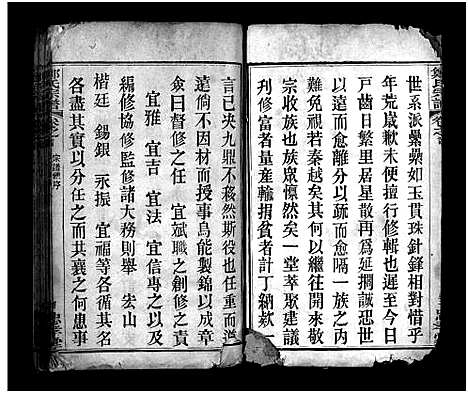 鄭氏宗譜
世系派彙彙如玉貫珠針鋒相對惜乎
年荒歲歉未便擅行修輯也遲至今日
戸齒日繁里居星散再為延擱誠恐世
遠而愈離分以踈而愈隔一族之内
難免視若秦越矣其何以繼往開來敬
宗收族也族眾慄然一堂萃聚建議
利修富者量產輸捐貧者計丁納欵
言已央九鼎不移然斯役也任重而道
遠倘不因材而授事烏能製錦以成章
僉曰督修之任 宜斌職之創修之責
宜雅 宜吉 宜法 宜信專之以及
編修協修監修諸大務則舉 宏山
楷廷 錫銀 永振 宜福等各循其名
各盡其實以分任之而共襄之何患事
鄭氏宗譜 卷之首